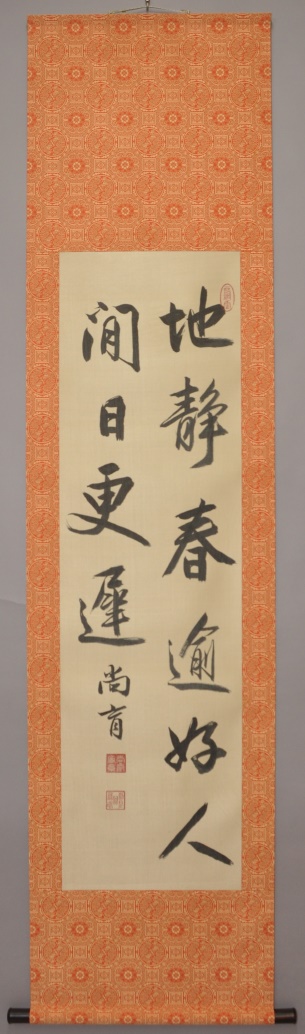 地静春逾好人
閒日更遲
尚育